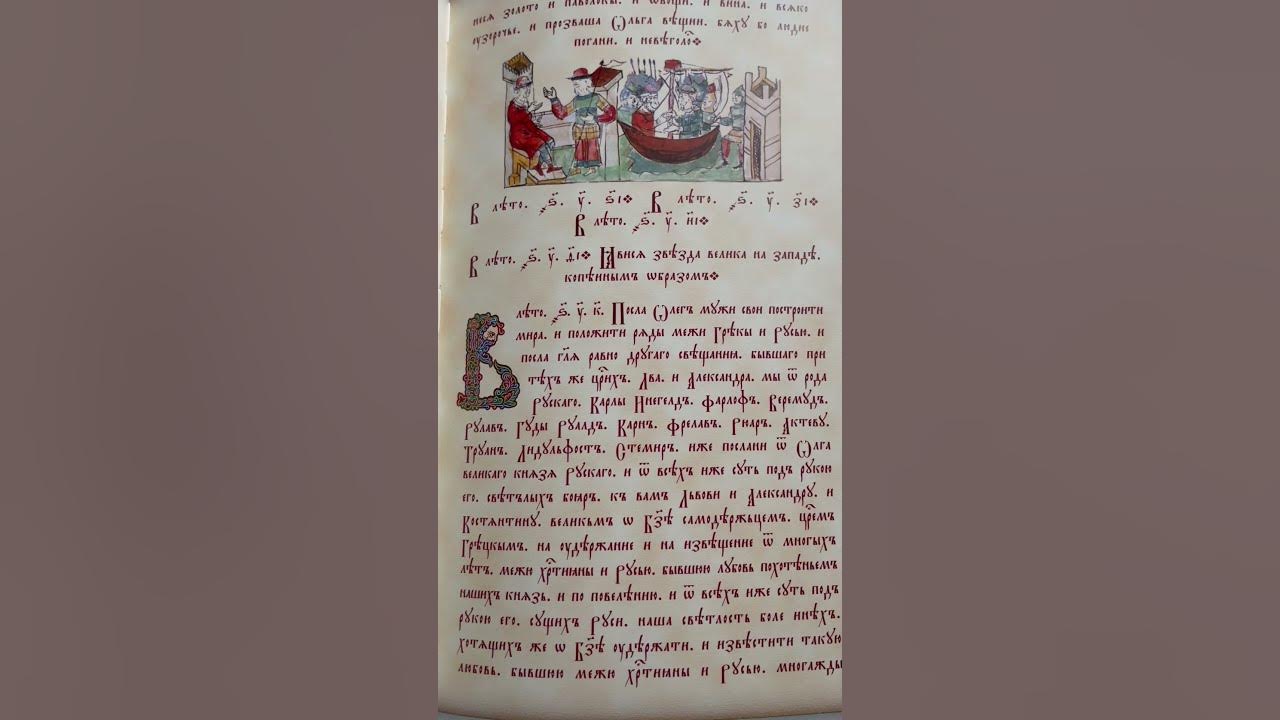 неся золото и паволокы. и ѡвощи. и вина. и всяко
оузорочье. и прозваша Ѡльга вѣщии. бяху бо людие
погани. и невѣголо҇
В лѣто. ҂ѕ҃. у҃. ѕ҃і В лѣто. ҂ѕ҃. у҃. з҃і
В лѣто. ҂ѕ҃. у҃. и҃і
В лѣто. ҂ѕ҃. у҃. ѳ҃і Ꙗвися звѣзда велика на западѣ.
копѣинымъ ѡбразомъ
В лѣто. ҂ѕ҃. у҃. к҃. Посла Ѡлегъ мужи свои построити
мира. и положити ряды межи Грѣкы и Русью. и
посла гл҃я равно другаго свѣщания. бывшаго при
тѣхъ же цр҃ихъ. Лва. и Александра. мы ѿ рода
Рускаго. Карлы Инегелдъ. Фарлофъ. Веремудъ.
Рулавъ. Гуды Руалдъ. Карнъ. Фрелавъ. Рюаръ. Актеву.
Труанъ. Лидульфостъ. Стемиръ. иже послани ѿ Ѡлга
великаго князя Рускаго. и ѿ всѣхъ иже суть подъ рукою
его. свѣтълыхъ бояръ. къ вамъ Львови и Александру. и
Костянтину. великымъ ѡ Бз҃ѣ самодѣржьцемъ. цр҃емъ
Грѣцкымъ. на оудѣржание и на извѣщение ѿ многыхъ
лѣтъ. межю хр҇тианы и Русью. бывшюю любовь похотѣньемъ
нашихъ князь. и по повелѣнию. и ѿ всѣхъ иже суть подъ
рукою его. сущихъ Руси. наша свѣтлость боле инѣхъ.
хотящихъ же ѡ Бз҃ѣ оудѣржати. и извѣстити такую
любовь. бывшюю межю хр҇тианы и Русью. многажды